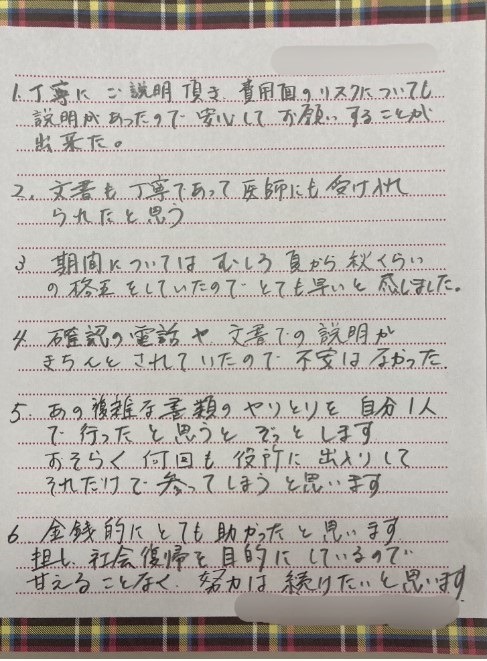 1. 丁寧に ご説明 頂き 費用面のリスクについても
説明があったので 安心して お願いすることが
出来た。
2. 文書も 丁寧であって 医師にも 受け入れ
られたと思う
3 期間については むしろ 夏から 秋くらい
の をしていたので とても早いと 感じました。
4. 確認の電話や 文書での 説明が
きちんと されていたので 不安は なかった.
5. あの複雑な書類の やりとりを 自分1人
で 行ったと 思うと ぞっとします
おそらく 何回も 役所に 出入りして
それだけで 参ってしまうと思います
6. 金銭的に とても 助かったと 思います
担し 社会復帰を 目的に しているので
甘えることなく 努力は 続けたいと思います